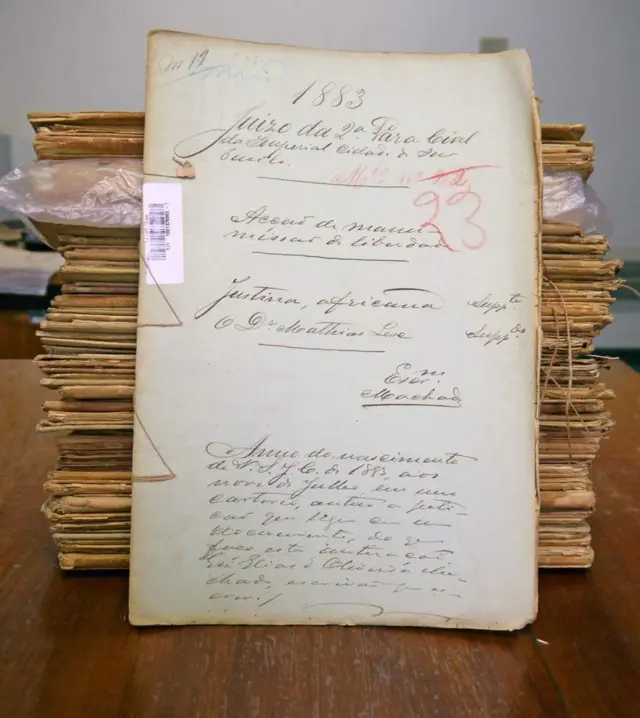 1883
Juizo da 2ª Vara Civel
da Imperial Cidade de
23
Acção de manu-
missão de liberdade
Justina, africana Suppte
O Dr Mathias Supp do
Escr.m
Machado
Anno do nascimento
de N. S. J. C. de 1883, aos
nove de Julho, em meu
cartorio, autuo a peti-
cão que segue com
documento, do q
faço esta autuacão
Eu, Elias d Oliveira Ma-
chado, escrivão que es-
crevi